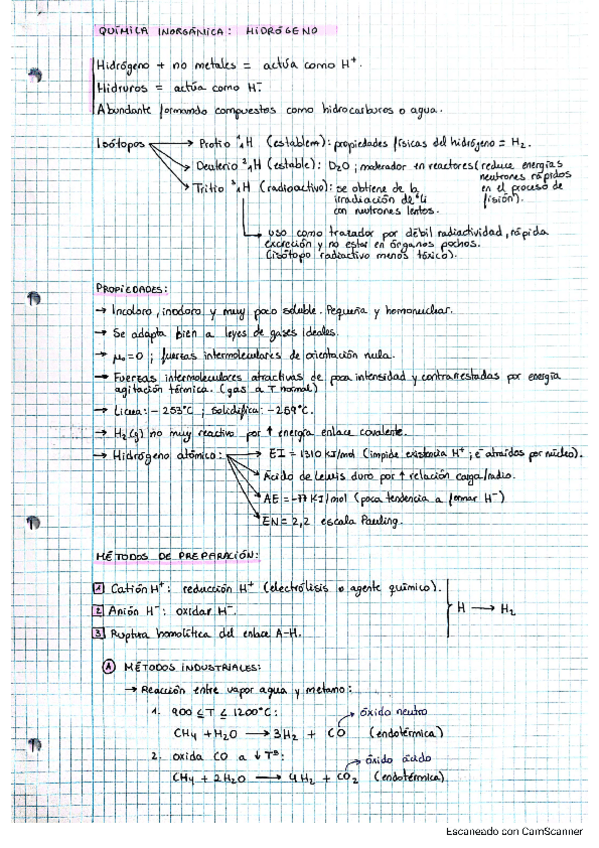 QUÍMICA INORGÁNICA: HIDRÓGENO
Hidrógeno + no metales = actúa como H⁺.
Hidruros = actúa como H⁻.
Abundante formando compuestos como hidrocarburos o agua.
Isótopos → Protio ¹₁H (establem): propiedades físicas del hidrógeno = H₂.
→ Deuterio ²₁H (estable): D₂O; moderador en reactores (reduce energías neutrones rápidos en el proceso de fisión).
→ Tritio ³₁H (radioactivo): se obtiene de la
irradiación de ⁶Li
con neutrones lentos.
→ uso como trazador por débil radiactividad, rápida
excreción y no estar en órganos pochos.
(isótopo radiactivo menos tóxico).
PROPIEDADES:
→ Incoloro, inodoro y muy poco soluble. Pequeña y homonuclear.
→ Se adapta bien a leyes de gases ideales.
→ μ₀ = 0 ; fuerzas intermoleculares de orientación nula.
→ Fuerzas intermoleculares atractivas de poca intensidad y contrarrestadas por energía
agitación térmica. (gas a T normal)
→ Licua: -253°C ; solidifica: -259°C.
→ H₂(g) no muy reactivo por ↑ energía enlace covalente.
→ Hidrógeno atómico: → EI = 1310 KJ/mol (impide existencia H⁺; e⁻ atraídos por núcleo).
→ Ácido de Lewis duro por ↑ relación carga/radio.
→ AE = -77 KJ/mol (poca tendencia a formar H⁻)
→ EN = 2,2 escala Pauling.
MÉTODOS DE PREPARACIÓN:
1 Catión H⁺: reducción H⁺ (electrólisis o agente químico).
2 Anión H⁻: oxidar H⁻.
H → H₂
3 Ruptura homolítica del enlace A-H.
A MÉTODOS INDUSTRIALES:
→ Reacción entre vapor agua y metano:
1. 900 ≤ T ≤ 1200°C: → óxido neutro
CH₄ + H₂O → 3H₂ + CO (endotérmica)
2. oxida CO a ↓ Tª: → óxido ácido
CH₄ + 2H₂O → 4H₂ + CO₂ (endotérmica).
Escaneado con CamScanner